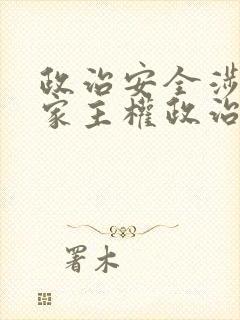 政治安全涉
家主權政治
署木